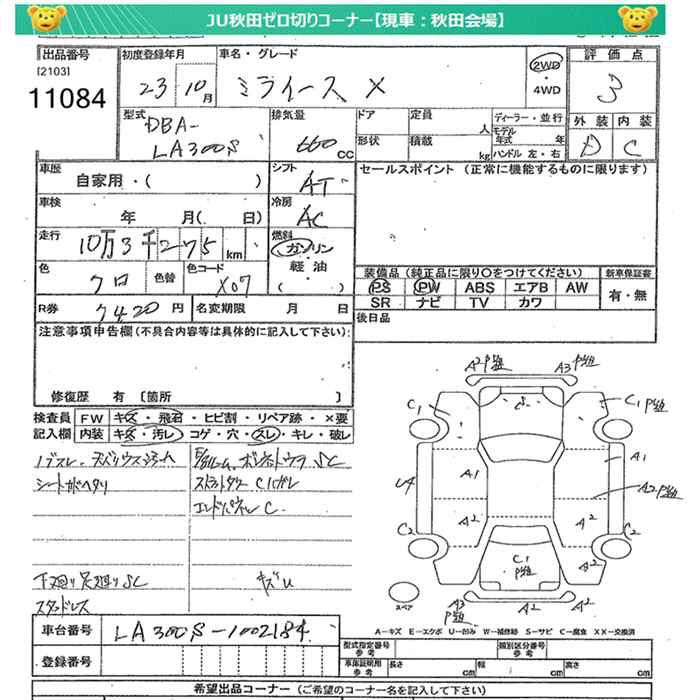 JU秋田ゼロ切りコーナー【現車:秋田会場】
出品番号
[2103]
11084
初度登録年月
23 10月
車名・グレード
ミライース X
2WD
・
4WD
評価点
3
外装 内装
D C
型式
DBA-
LA300S
排気量
660
CC
ドア
形状
定員
人
積載
kg
ディーラー・並行
モデル
年式 年
ハンドル 左・右
車歴
自家用・( )
シフト
AT
セールスポイント (正常に機能するものに限ります)
車検
年 月( 日)
冷房
AC
走行
10万3千275 km
燃料
ガソリン
・
軽油
( )
色
クロ
色替
色コード
X07
装備品(純正品に限り○をつけてください)
新車保証書
PS PW ABS エアB AW
SR ナビ TV カワ
有・無
R券
7420円
名変期限 月 日
後日品
注意事項申告欄(不具合内容等は具体的に記入して下さい):
修復歴 有 〔箇所 〕
検査員 FW キズ・飛石・ヒビ割・リペア跡・×要
記入欄 内装 キズ・汚レ・コゲ・穴・スレ・キレ・破レ
シートカバーヘタリ
コアサポート
エンドパネル C
下廻り足廻りSC
キズU
スタッドレス
A2 P跡
A3 P跡
C1
C1 P跡
A1
A1
A2 P跡
A2
A2
C2
C2
A2
C1
P跡
A3
P跡
A2
A2
スペア
A−キズ E−エクボ U−凹み W−補修跡 S−サビ C−腐食 XX−交換済
車台番号
LA300S-1002184
登録番号
型式指定番号
参考
類別区分番号
参考
車体証明用
参考
長さ cm
幅 cm
高さ cm
希望出品コーナー(ご希望のコーナー名を記入して下さい)